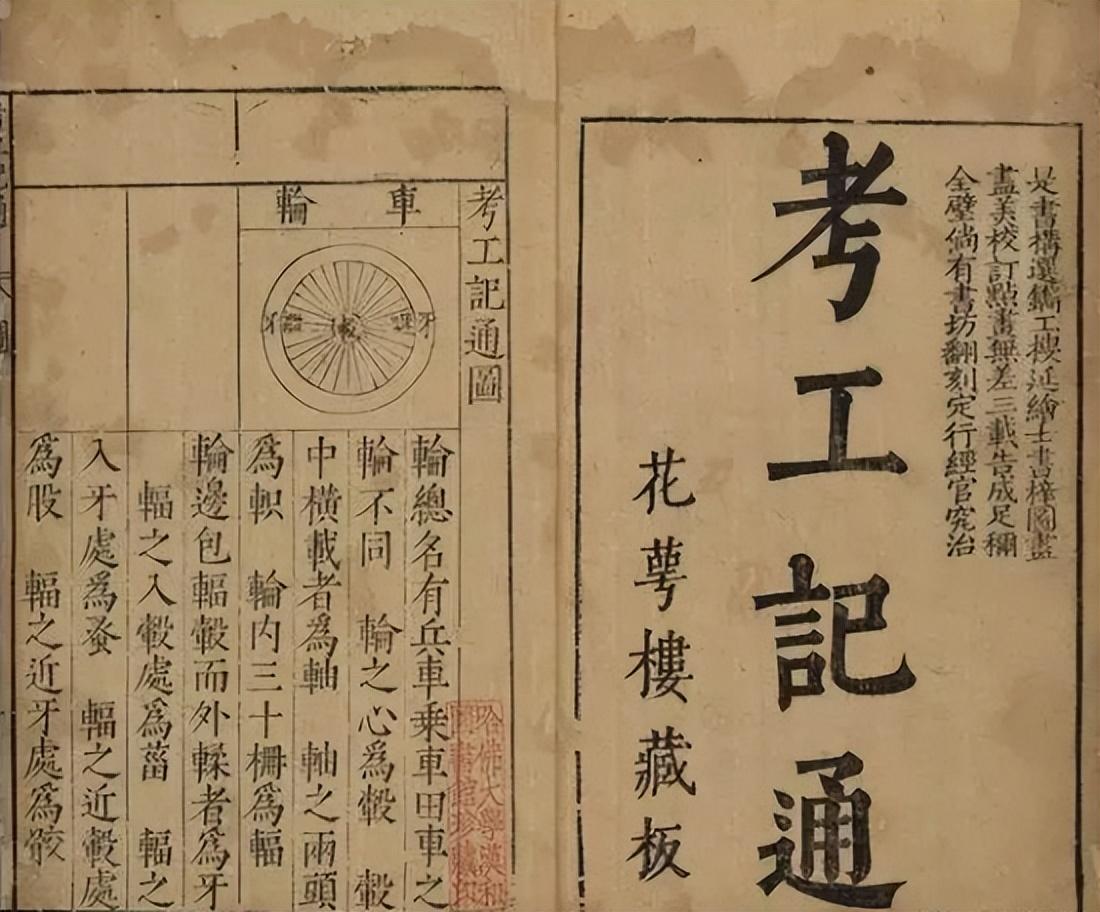 是書構選鐫工樓延繪士書梓圖盡
盡美校訂點畫無差三載告成足稱
全璧倘有書坊翻刻定行經官究治
考工記通
花萼樓藏板
考工記通圖
車輪
牙
轂
牙
輪總名有兵車乘車田車之
輪不同　輪之心為轂　轂
中橫載者為軸　軸之兩頭
為軹　輪內三十柵為輻
輪邊包輻轂而外輮者為牙
輻之入轂處為菑　輻之
入牙處為蚤　輻之近轂處
為股　輻之近牙處為骹
哈佛大學漢和
圖書館珍藏印